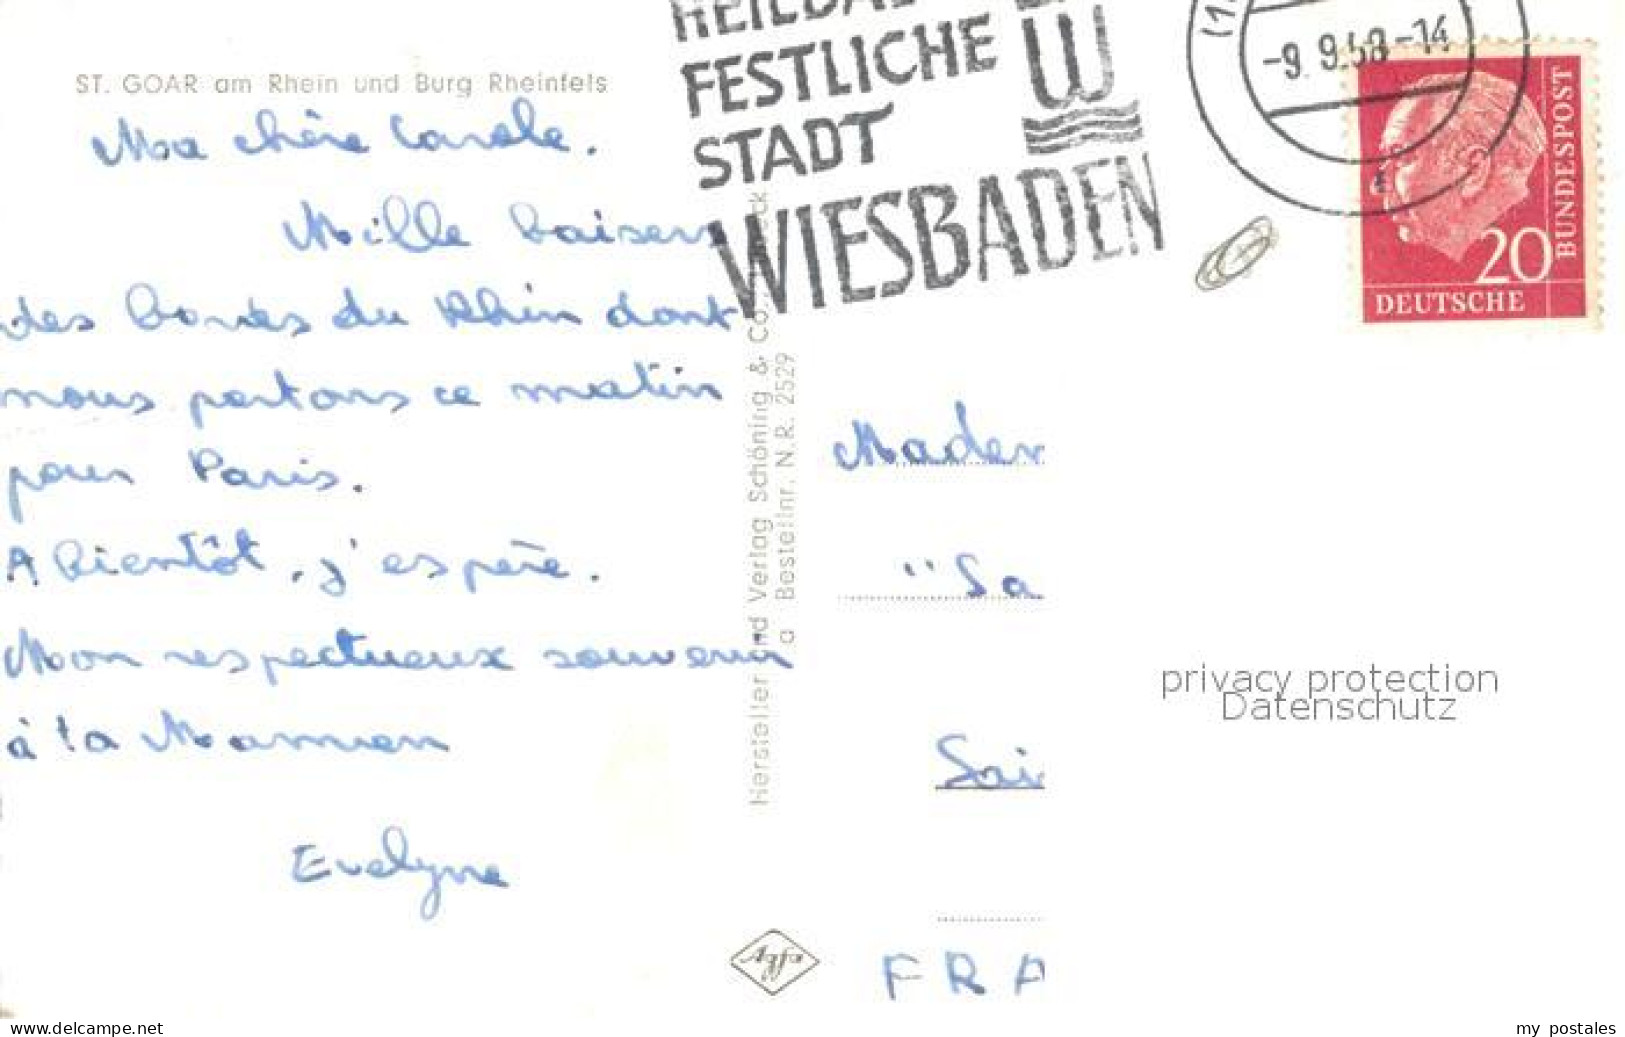 ST. GOAR am Rhein und Burg Rheinfels
Ma chère Carole.
Mille baisers
des bords du Rhin dont
nous partons ce matin
pour Paris.
A bientôt, j'espère.
Mon respectueux souvenir
à ta Maman
Evelyne
FESTLICHE
STADT
WIESBADEN
W
-9.9.58-14
20
DEUTSCHE
BUNDESPOST
Hersteller und Verlag Schöning & Co.,
Bestellnr. N.R. 2529
Madem
"Sa
Sai
FRA
privacy protection
Datenschutz
www.delcampe.net
my postales